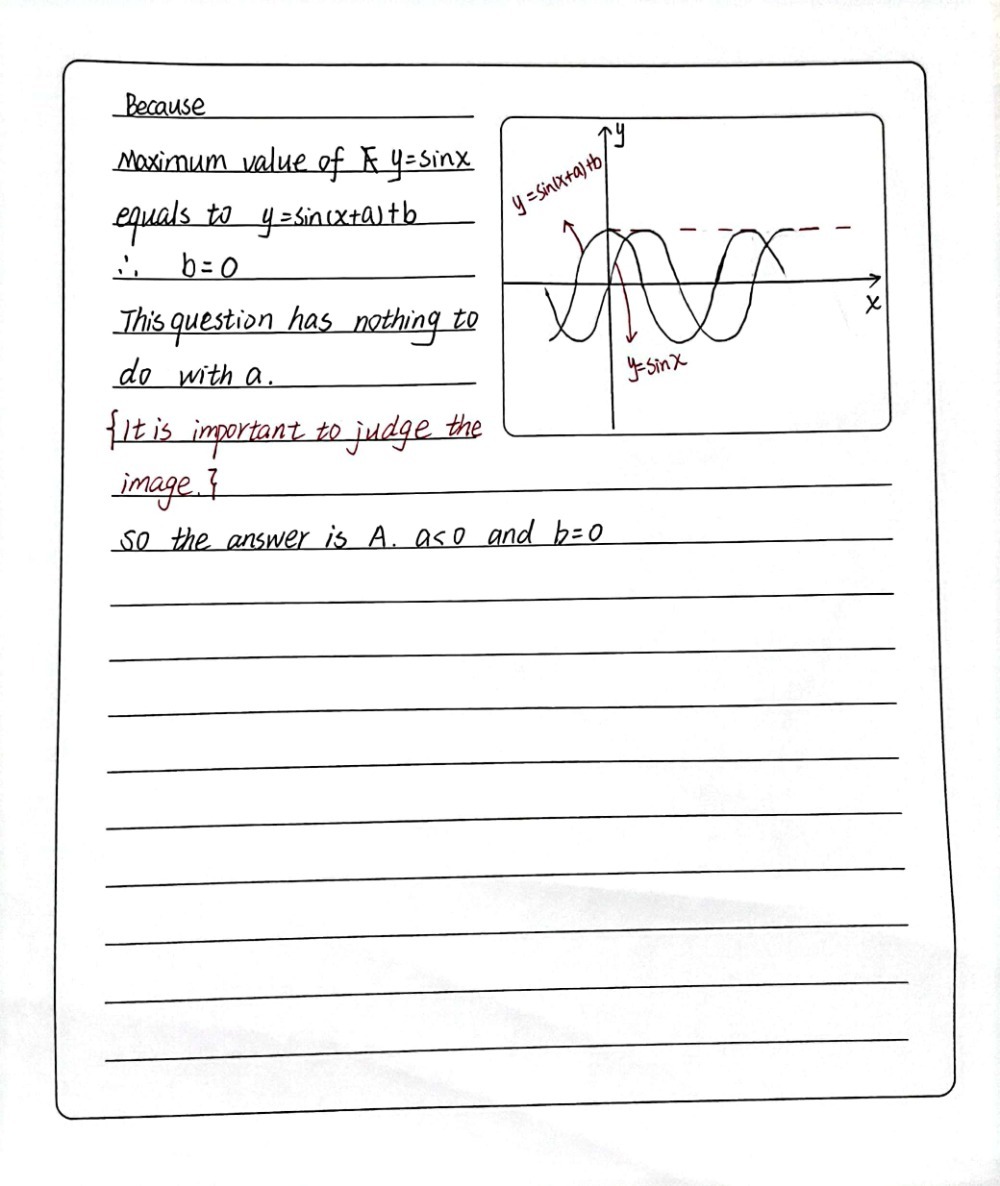 Because
Maximum value of y=sinx
equals to y=sin(x+a)+b
∴ b=0
This question has nothing to
do with a.
{It is important to judge the
image.}
so the answer is A. a<0 and b=0
y
y=sin(x+a)+b
x
y=sinx